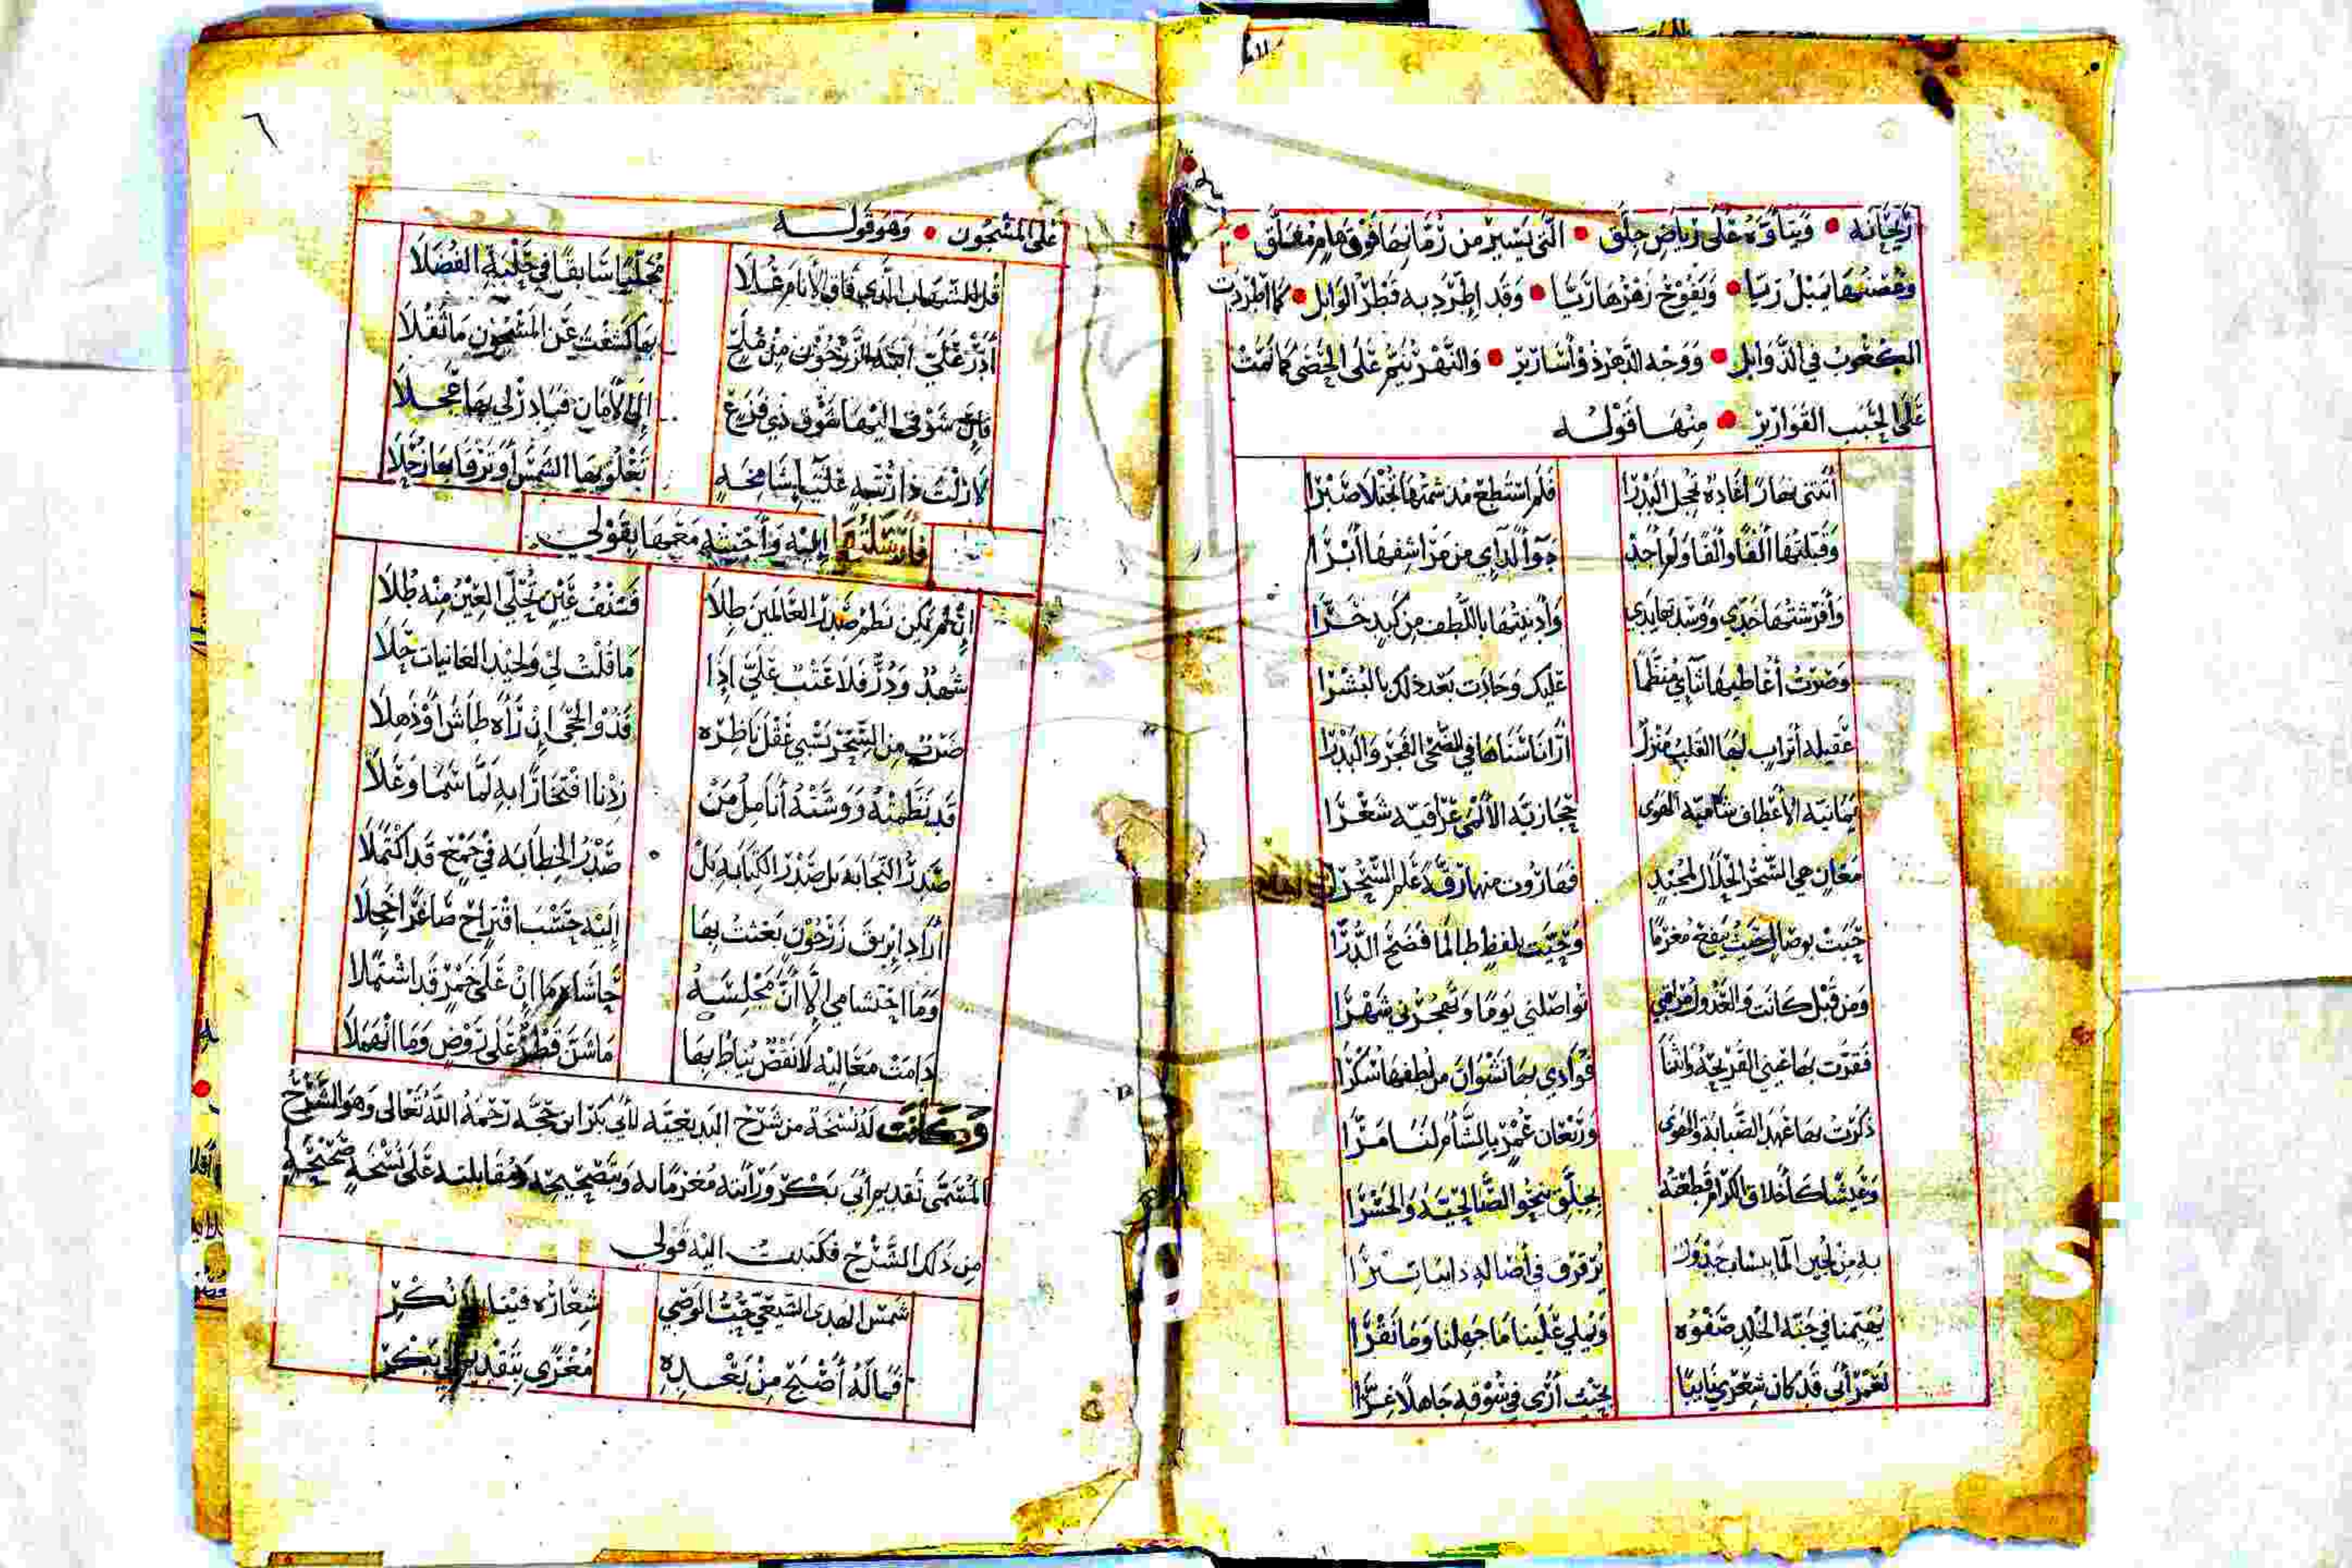 ريحانه • وبناؤه على رياض جلق • التي يسير من زمانها فوق هام معلق •
وغصنها يميل زيا • ويفوح زهرها ريا • وقد اطرد به قطر الوابل • كما اطردت
الكعوب في الذوابل • ووجه الدهر ذو أسارير • والنهر ينم على الحصى كما نمت
على الحبب القوارير • منها قوله
أتتني نهارا غادة تخجل البدرا فلم استطع مذ شمتها تجتلا صبرا
وقبلتها ألفا وألفا ولم أجد دواء لدائي من مراشفها أبرا
وأفرشتها خدي ووسدتها يدي وأدنيتها باللطف من كبد حرا
وصرت أعاطيها ثنائي منظما عليك وجاءت بعد ذلك بالبشرا
عقيلة أتراب لها القلب منزل أرانا سناها في الضحى الفجر والبدرا
يمانية الأعطاف شامية الهوى حجازية الألمى عراقية شعرا
معان هي السحر الحلال لمجتد فهاروت منها رقة علم السحرا
حبت بوصال حيث ينفع مغرما وحيت بلفظ طالما فضح الدرا
ومن قبل كانت والعذول مراقبي تواصلني يوما وتهجرني شهرا
فقرت بها عيني القريحة وانثنا فؤادي بها نشوان من لطفها سكرا
ذكرت بها عهد الصبابة والهوى وريعان عمر بالشأم لنا مرا
وعيشا كأخلاق الكرام قطعته بجلق نحو الصالحية والجسرا
به من لجين الما ينساب جدول ترقرق في أصاله دايبا تبرا
يفيتنا في جنة الخلد صفوه ويملي علينا ما جهلنا وما نقرا
لعمر أبي قد كان شعري نابيا بحيث أرى في سوقه جاهلا غرا
٦
على المشجون • وهو قوله
قل للشهاب الذي فاق الأنام علا مجليا سابقا في حلبة الفضلا
أدر علي ابنة الزرجون من ملح بها كشفت عن المشجون ما ثقلا
فإن شوقي اليها شوق ذي فزع إلى الأمان فبادر لي بها عجلا
لا زلت ذا رتبة علياء شامخة تعلو بها الشمس أو ترقا بها زحلا
فأرسلتها إليه وأحسنه معها بقولي
إن لم يكن نظم صدر العالمين طلا فصنف عين تحلى العين منه طلا
شهد ودر فلا عتب علي إذا ما قلت لي ولجيد الغانيات حلا
ضرب من السحر يسبي عقل ناظره فذو الحجى إن رآه طاش أو ذهلا
قد نظمته ووشته أنامل من زدنا افتخارا به لما سما وعلا
صدر النجابه بل صدر الكتابه بل صدر الخطابه في جمع قد اكتملا
أراد ابريق زرجون بعثت بها إليه حسب اقتراح صاغرا خجلا
وما احتشامي إلا أن مجلسه حاشاه ما إن على خمر قد اشتملا
دامت معاليه لا نقض يناط بها ما شن قطر على روض وما انهملا
وكانت له نسخة من شرح البديعيه لأبي بكر ابن حجه رحمه الله تعالى وهو الشرح
المسمى تقديم أبي بكر ورأيته مغرما به وبتصحيحه ومقابلته على نسخة صحيحة
من ذلك الشرح فكتبت اليه قولي
شمس الهدى الشيعي حب الوصي شعاره فينا نكر
فما له أصبح من بعده مغرى بتقديم أبي بكر